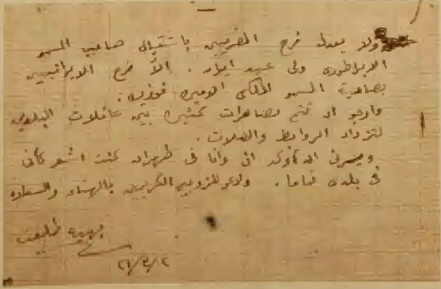 ولا يعدل فرح المصريين باستقبال صاحب السمو
الامبراطورى ولى عهد ايران . الا فرح الايرانيين
بصاحبة السمو الملكى الاميرة فوزية .
وارجو ان تتم مصاهرات كثيرة بين عائلات البلدين
لتزداد الروابط والصلات .
ويسرنى ان أؤكد انى وأنا فى طهران كنت اشعر كأنى
فى بلدى تماما . وادعو للزوجين الكريمين بالهناء والسعادة